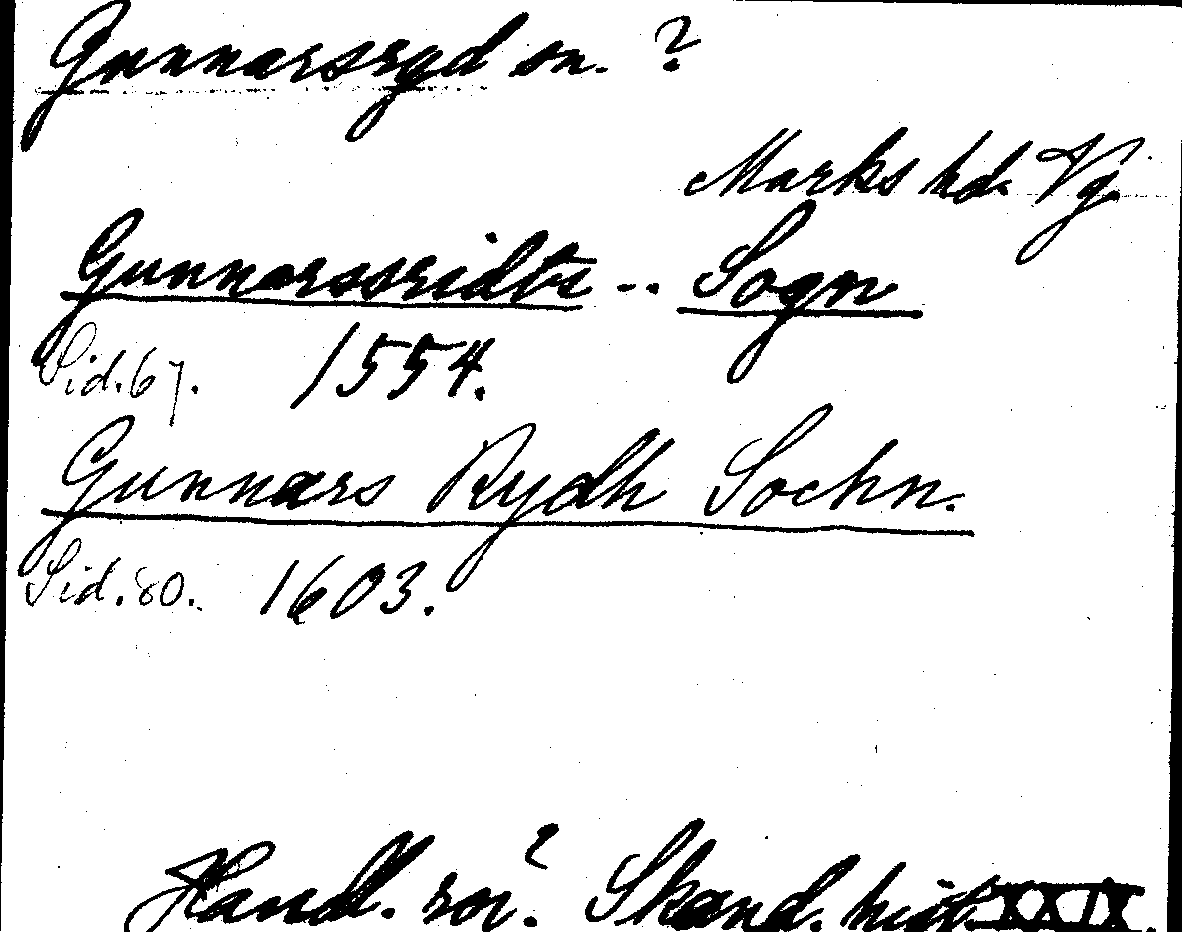 Gunnarsryd sn. ?
Marks hd. Vg.
Gunnarssridts -- Sogn
Sid. 67. 1554.
Gunnars Rydh Sochn.
Sid. 80. 1603.
Handl. rör. Skand. hist. XXIX.